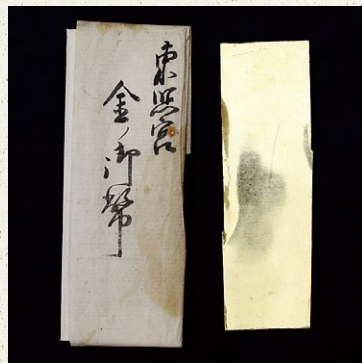 東照宮
金ノ御幣